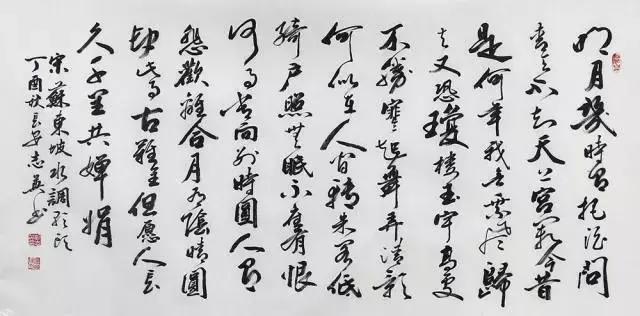 明月幾時有把酒問
青天不知天上宮闕今昔
是何年我欲乘風歸
去又恐瓊樓玉宇高處
不勝寒起舞弄清影
何似在人間轉朱閣低
綺戶照無眠不應有恨
何事長向別時圓人有
悲歡離合月有陰晴圓
缺此事古難全但愿人長
久千里共嬋娟
宋蘇東坡水調歌頭
丁酉秋長安志英書